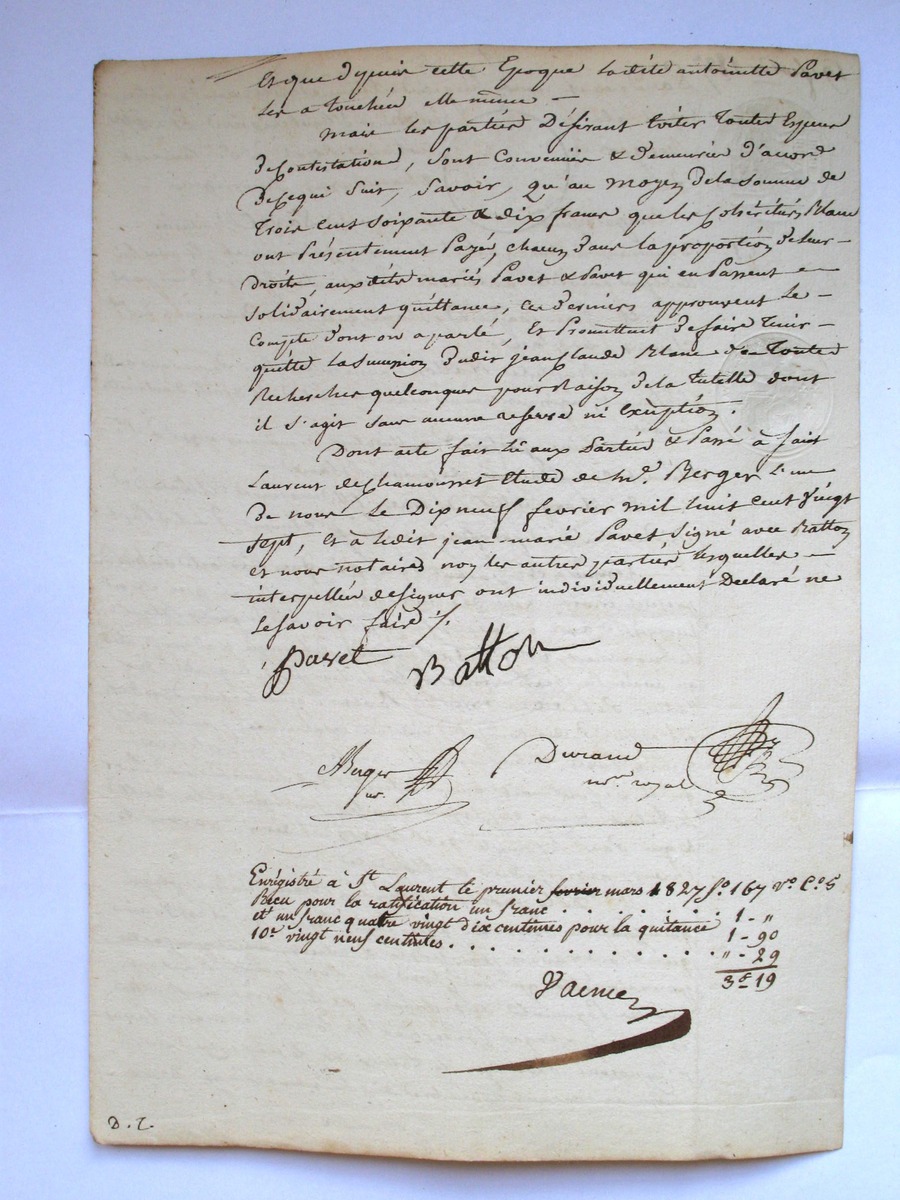 Et que depuis cette Epoque ladite antoinette Pavet
Les a touchée elle meme —
Mais les parties Désirant Eviter Toutes Espece
De Contestation, sont Convenües & Demeurée d'accord
De Cequi suit, Savoir, qu'au moyen dela somme de
Trois cent soixante & dix francs que les Cohéritiers Blanc
ont Présentement Payé, chacun dans la proportion de leur
Droits, aux dits mariés Pavet & Pavet qui en Passent —
solidairement quittance, Ces derniers approuvent Le —
Compte dont on a parlé, Et Promettent de faire Tenir —
quitte La succession dudit jean Claude Blanc de Toutes
Recherches quelconques pour Raison de la tutelle dont
il s'agit sans aucune reserve ni Exception.
Dont acte fait lû aux Parties & Passé à saint
Laurent de Chamousset Etude de Me. Berger L'un
De nous Le Dix neuf fevrier mil huit cent Vingt
Sept, Et a Ledit jean marie Pavet signé avec Batton
et nous notaires non les autres parties lesquelles —
interpellées de signer ont individuellement Déclaré ne
Le savoir faire /.
Pavet Batton
Berger Durand
nre. royal
Enregistré à St Laurent le premier fevrier mars 1827 fo. 167 Vo. Ce. 5
Recu pour la ratification un franc . . . . . . . . 1 - "
et un franc quatre vingt dix centimes pour la quitance 1 - 90
10e. vingt neuf centimes . . . . . . . . . . . " - 29
3f 19
D. T.